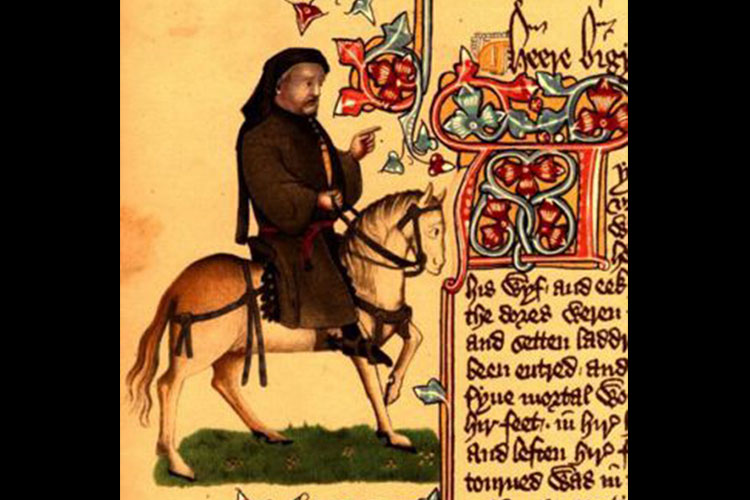 heere bigi
his wyf and eek
the dores weren
and setten laddr
been entred and
fyue mortal wo
hir feet in hir
and leften hir
tourned was in